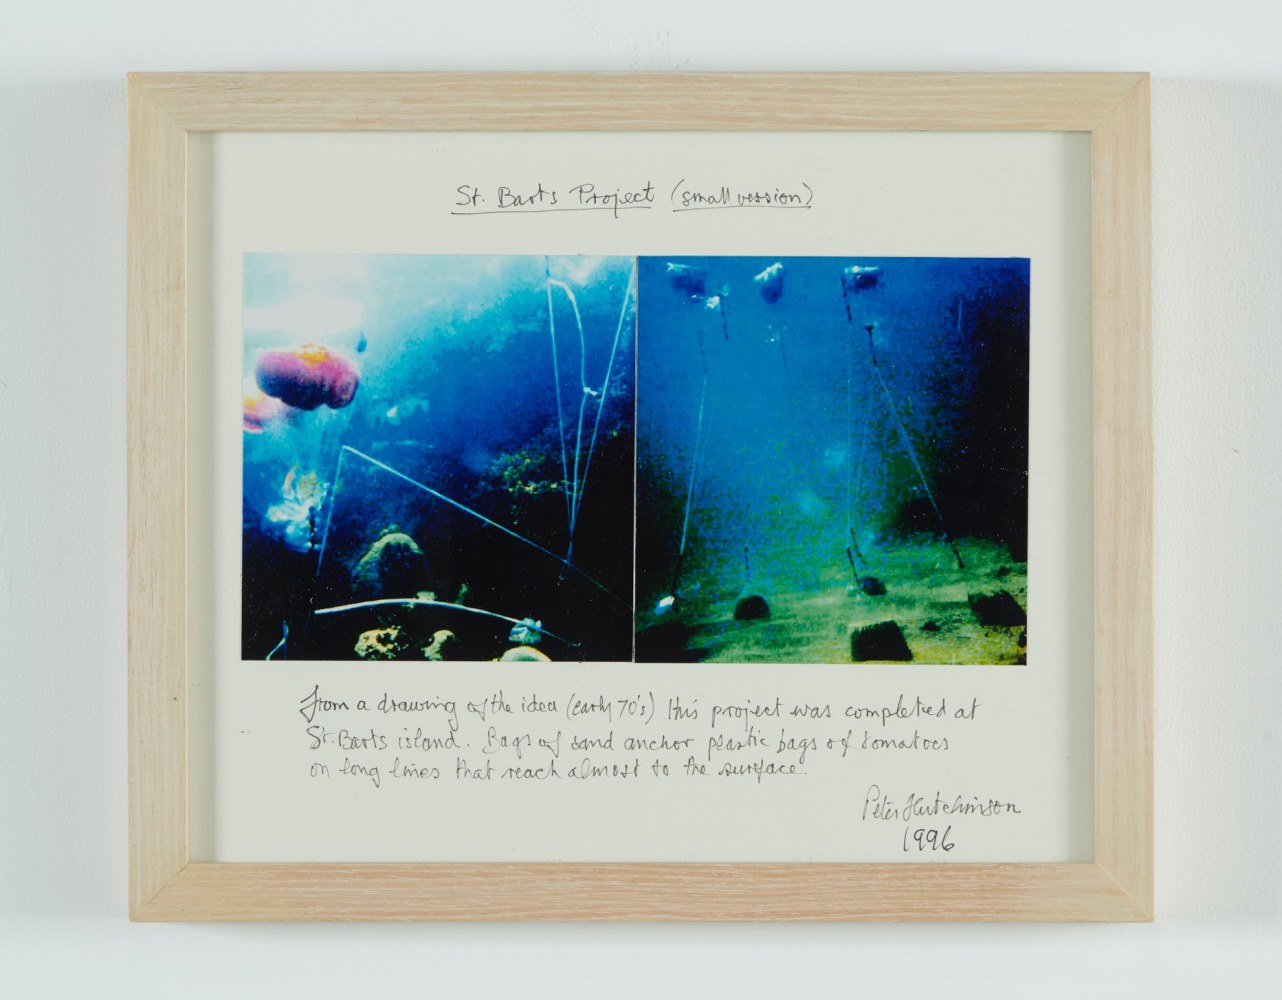 St. Barts Project (small version)
From a drawing of the idea (early 70's) this project was completed at
St. Barts island. Bags of sand anchor plastic bags of tomatoes
on long lines that reach almost to the surface.
Peter Hutchinson
1996